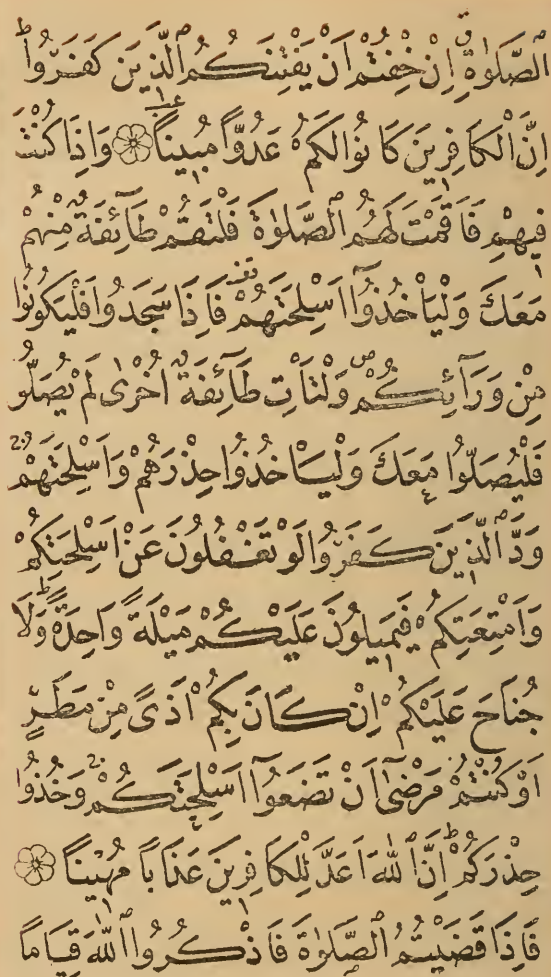 ٱلصَّلٰوةِ اِنْ خِفْتُمْ اَنْ يَفْتِنَكُمُ ٱلَّذِينَ كَفَرُٓواۜ
اِنَّ ٱلْكَافِرِينَ كَانُوا لَكُمْ عَدُوًّا مُبِيناً وَاِذَا كُنْتَ
فِيهِمْ فَاَقَمْتَ لَهُمُ ٱلصَّلٰوةَ فَلْتَقُمْ طَٓائِفَةٌ مِنْهُمْ
مَعَكَ وَلْيَأْخُذُٓوا اَسْلِحَتَهُمْ فَاِذَا سَجَدُوا فَلْيَكُونُوا
مِنْ وَرَٓائِكُمْ وَلْتَأْتِ طَٓائِفَةٌ اُخْرٰى لَمْ يُصَلُّوا
فَلْيُصَلُّوا مَعَكَ وَلْيَأْخُذُوا حِذْرَهُمْ وَاَسْلِحَتَهُمْ
وَدَّ ٱلَّذِينَ كَفَرُوا لَوْ تَغْفُلُونَ عَنْ اَسْلِحَتِكُمْ
وَاَمْتِعَتِكُمْ فَيَمِيلُونَ عَلَيْكُمْ مَيْلَةً وَاحِدَةً وَلَا
جُنَاحَ عَلَيْكُمْ اِنْ كَانَ بِكُمْ اَذًى مِنْ مَطَرٍ
اَوْ كُنْتُمْ مَرْضٰٓى اَنْ تَضَعُٓوا اَسْلِحَتَكُمْ وَخُذُوا
حِذْرَكُمْ اِنَّ ٱللّٰهَ اَعَدَّ لِلْكَافِرِينَ عَذَاباً مُهِيناً
فَاِذَا قَضَيْتُمُ ٱلصَّلٰوةَ فَاذْكُرُوا ٱللّٰهَ قِيَاماً